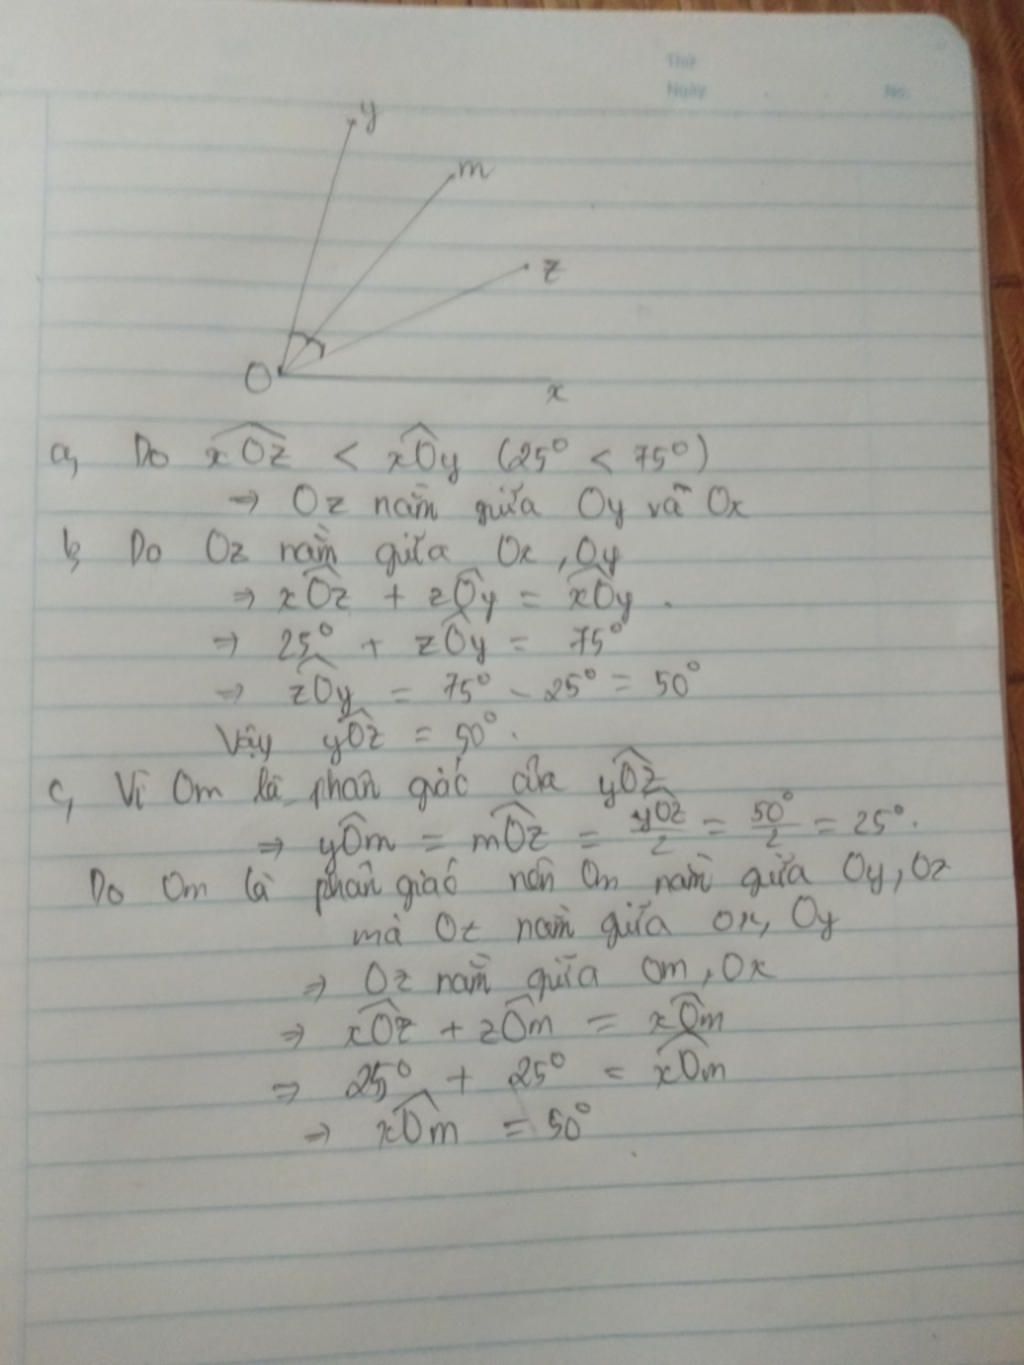 Thứ
Ngày No.
y
m
z
O
x
a, Do xOz < xOy (25° < 75°)
⇒ Oz nằm giữa Oy và Ox
b, Do Oz nằm giữa Ox, Oy
⇒ xOz + zOy = xOy.
⇒ 25° + zOy = 75°
⇒ zOy = 75° - 25° = 50°
Vậy yOz = 50°.
c, Vì Om là phân giác của yOz
⇒ yOm = mOz = yOz/2 = 50°/2 = 25°.
Do Om là phân giác nên Om nằm giữa Oy, Oz
mà Oz nằm giữa Ox, Oy
⇒ Oz nằm giữa Om, Ox
⇒ xOz + zOm = xOm
⇒ 25° + 25° = xOm
⇒ xOm = 50°